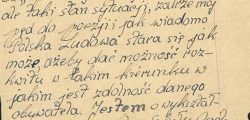 ale taki stan sytuacji, zależe mój
pęd do poezji jak wiadomo
Polska Ludowa stara się jak
może ażeby dać możność roz-
kwitu w takim kierunku w
jakim jest zdolność danego
obywatela. Jestem o wykształ-